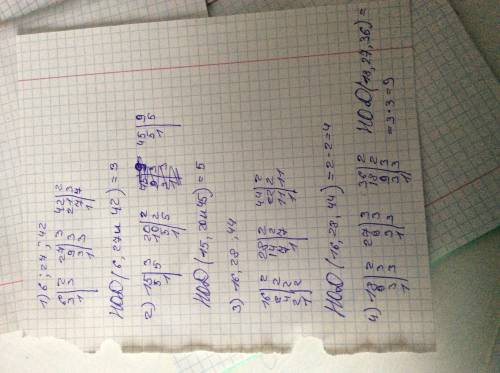 1) 6; 27; 42
6|2 27|3 42|2
3|3 9|3 21|3
1| 3|3 7|7
1| 1|
НОД (6, 27 и 42) = 3
2) 15|3 20|2 45|9
5|5 10|2 5|5
1| 5|5 1|
1|
НОД (15, 20 и 45) = 5
3) 16, 28, 44
16|2 28|2 44|2
8|2 14|2 22|2
4|2 7|7 11|11
2|2 1| 1|
1|
НОД (16, 28, 44) = 2·2=4
4) 18|2 27|3 36|2
9|3 9|3 18|2
3|3 3|3 9|3
1| 1| 3|3
1|
НОД (18, 27, 36) =
= 3·3=9